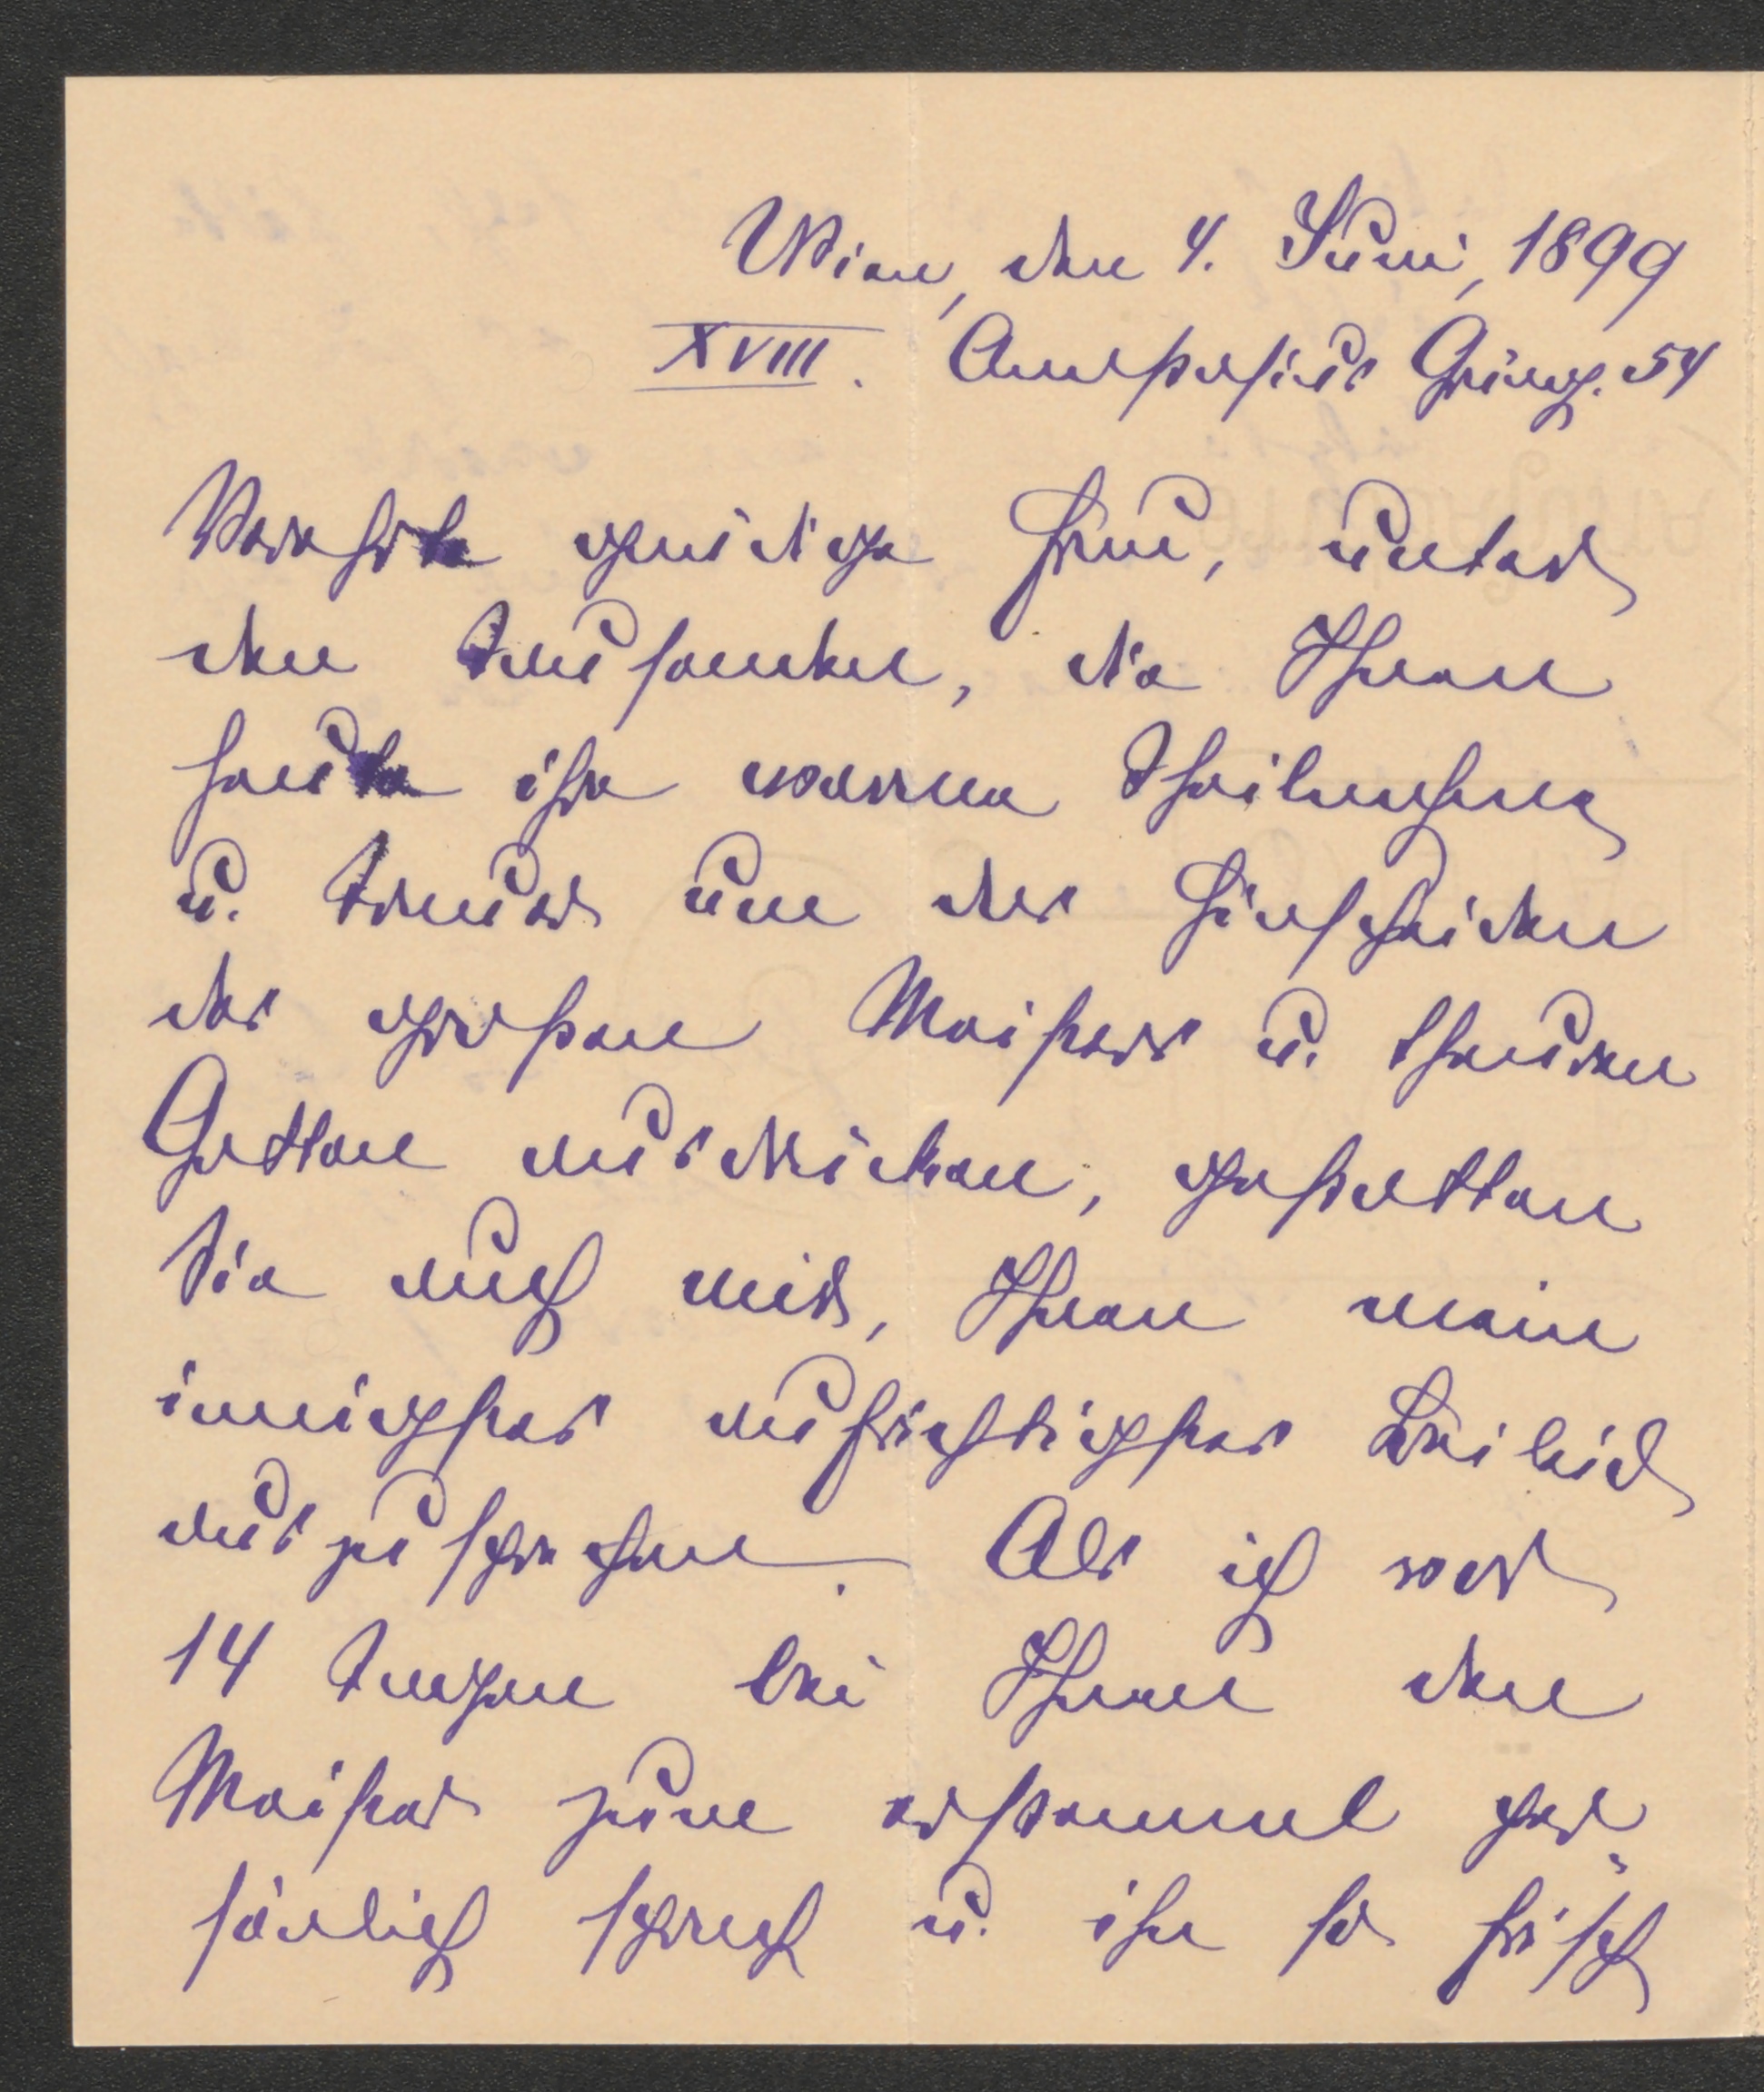 Wien, den 4. Juni, 1899
XVIII. Anastasius Grüng. 54
Verehrte gnädige Frau, unter
den Tausenden, die Ihnen
heute ihre warme Theilnahme
u. Trauer um das Hinscheiden
des großen Meisters u. theuren
Gatten ausdrücken, gestatten
Sie auch mir, Ihnen mein
innigstes aufrichtigstes Beileid
auszusprechen. Als ich vor
14 Tagen bei Ihnen den
Meister zum erstenmal per-
sönlich sprach u. ihn so frisch